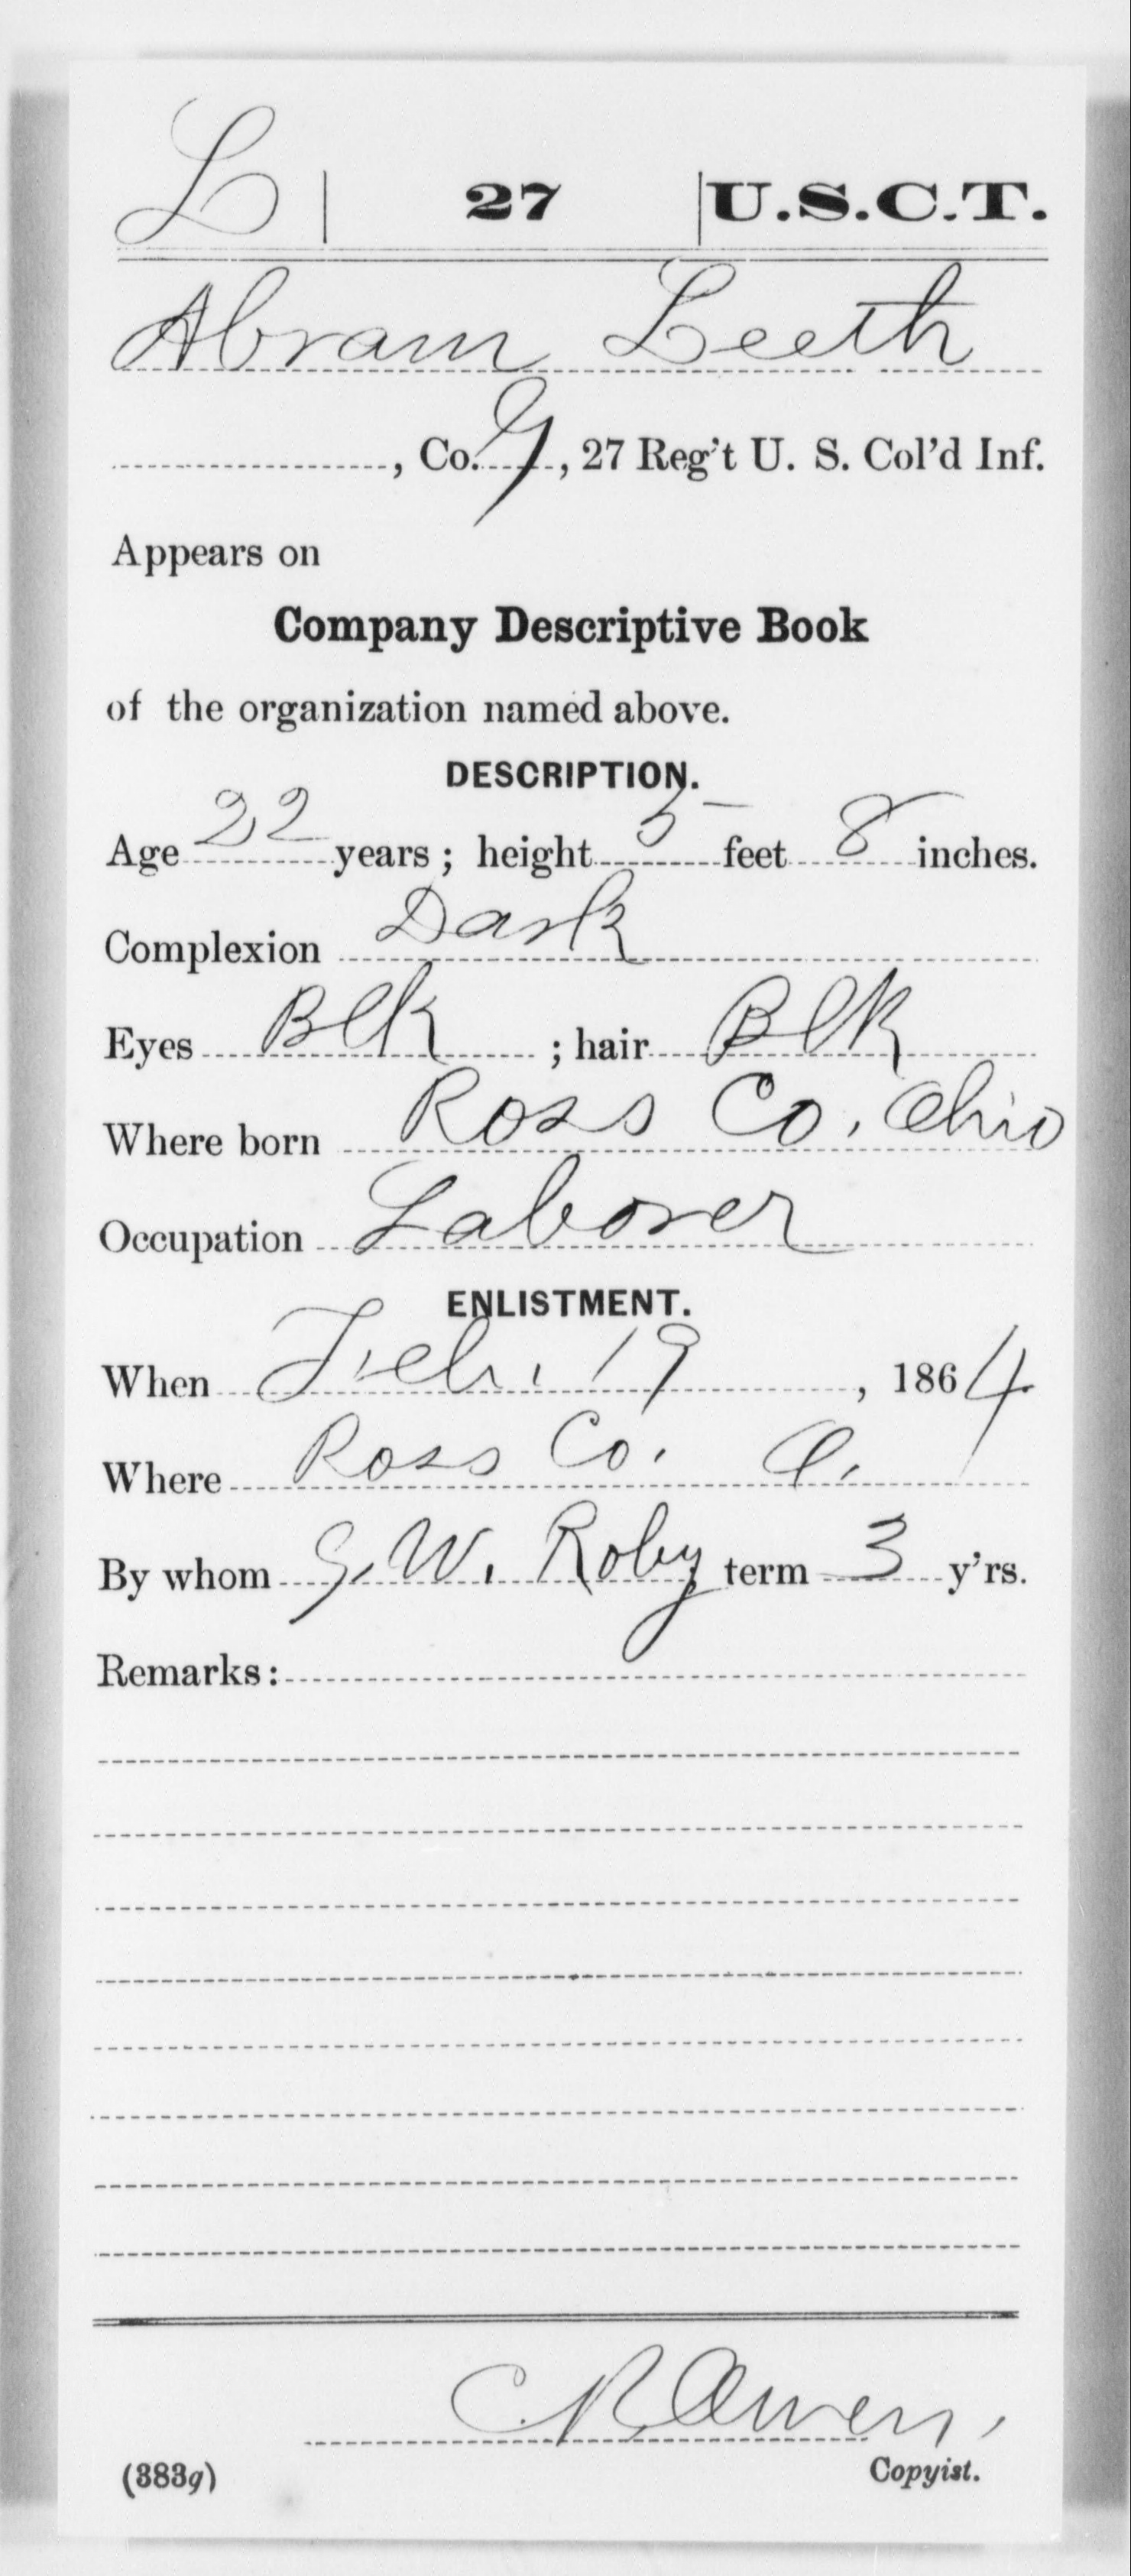 L | 27 | U.S.C.T.
Abram Leeth
, Co. G, 27 Reg't U. S. Col'd Inf.
Appears on
Company Descriptive Book
of the organization named above.
DESCRIPTION.
Age 22 years; height 5 feet 8 inches.
Complexion Dark
Eyes Blk ; hair Blk
Where born Ross Co. Ohio
Occupation Laborer
ENLISTMENT.
When Feb. 19, 1864
Where Ross Co. O.
By whom G. W. Roby term 3 y'rs.
Remarks:
C R Owen,
(383g) Copyist.